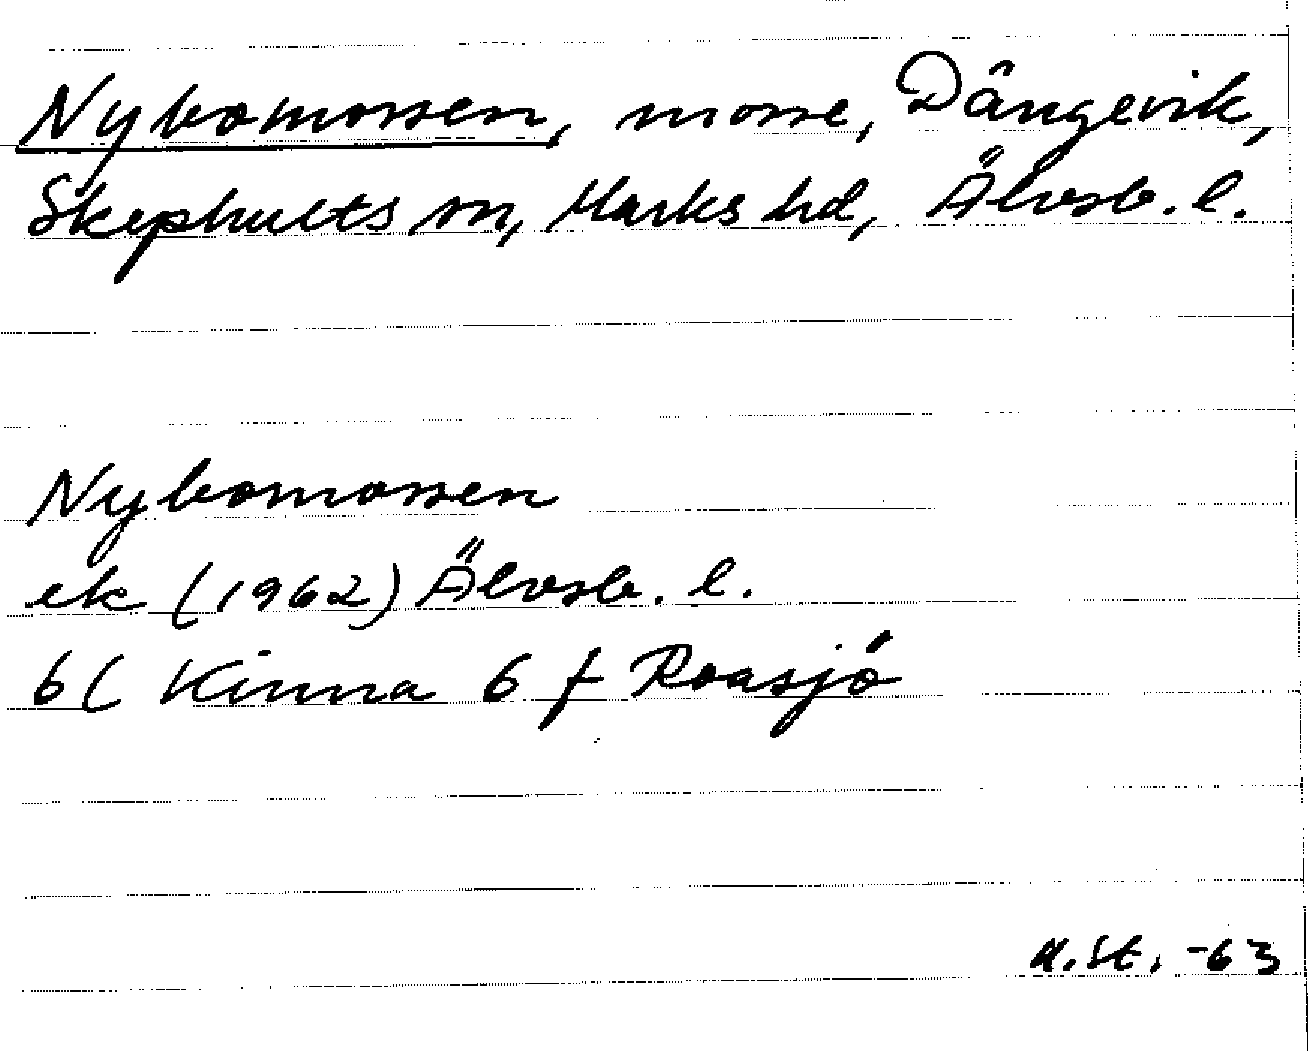 Nybomossen, mosse, Dångevik,
Skephults sn, Marks hd, Älvsb. l.
Nybomossen
ek (1962) Älvsb. l.
6C Kinna 6 f Roasjö
H.St. -63